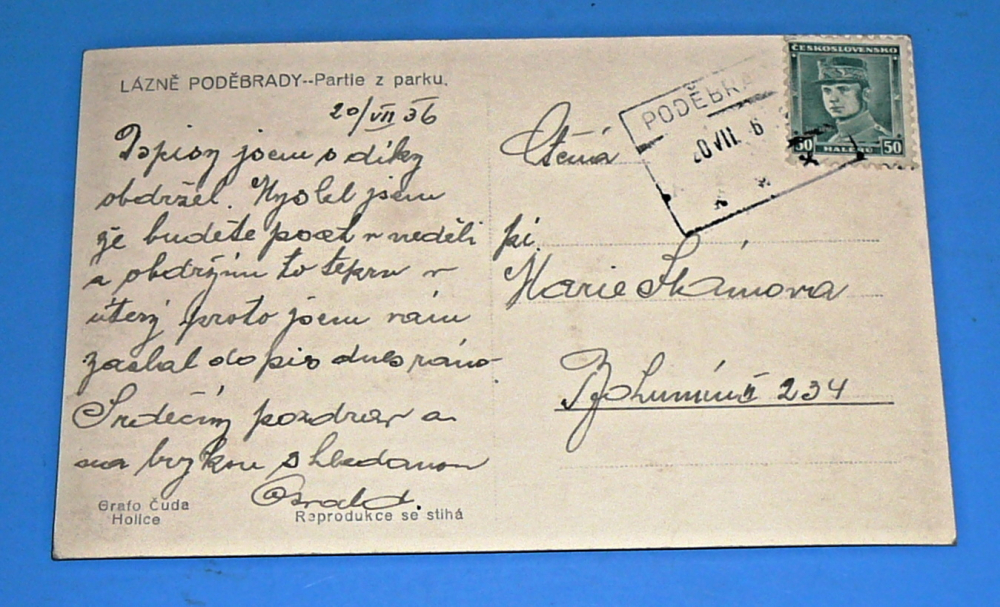 LÁZNĚ PODĚBRADY--Partie z parku.
20/VII 36
Dopisy jsem s díky
obdržel. Myslel jsem
že budete psát v neděli
a obdržím to teprv v
úterý proto jsem vám
zaslal dopis dnes ráno
Srdečný pozdrav a
na brzkou shledanou
Osvald.
Grafo Čuda
Holice
Reprodukce se stíhá
PODĚBRA
20 VII. 6
ČESKOSLOVENSKO
50 HALÉŘŮ 50
Ctěná
pí
Marie
Bohumín II 234